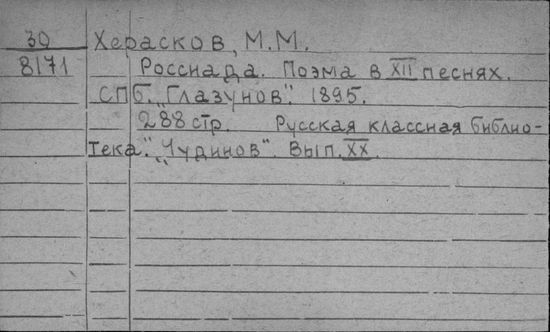 30 Херасков, М.М.
8171 Россиада. Поэма в XII песнях.
СПб. "Глазунов". 1895.
288 стр. Русская классная библио-
тека". "Чудинов". Вып. XX.